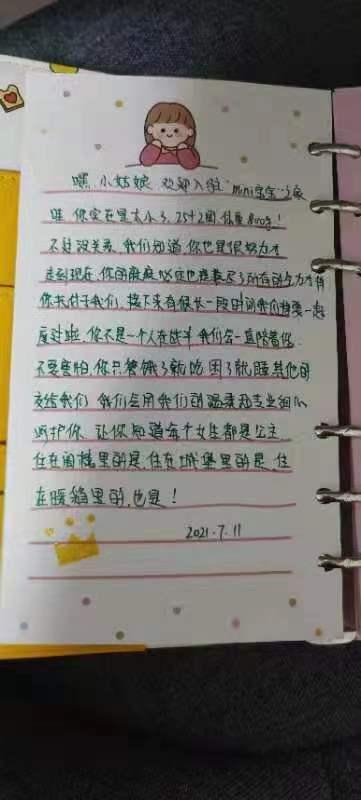 嘿，小姑娘 欢迎入住"mini宝宝"之家
哇，你实在是太小了，25+2周，体重800g！
不过没关系，我们知道，你也是很努力才
走到现在，你的家庭也拼尽了所有的努力才将
你托付于我们，接下来有很长一段时间我们将要一起
度过啦，你不是一个人在战斗，我们会一直陪着你
不要害怕，你只管饿了就吃，困了就睡，其他的
交给我们，我们会用我们的温柔和专业细心
呵护你，让你知道每个女生都是公主
住在阁楼里的是，住在城堡里的是，住
在暖箱里的，也是！
2021.7.11